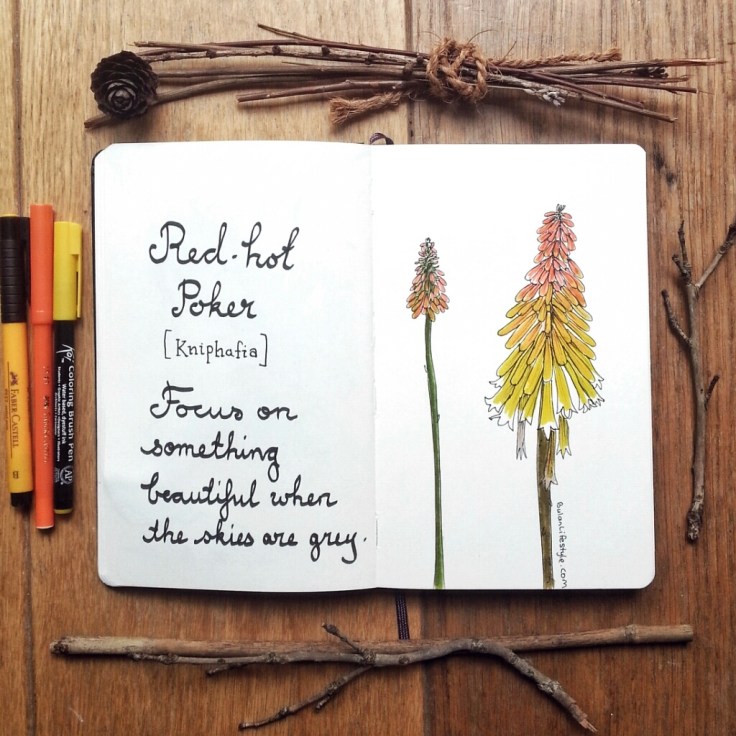 Red-hot
Poker
[Kniphafia]
Focus on
something
beautiful when
the skies are grey.
BulanLifestyle.com
FABER-CASTELL
Coloring Brush Pen